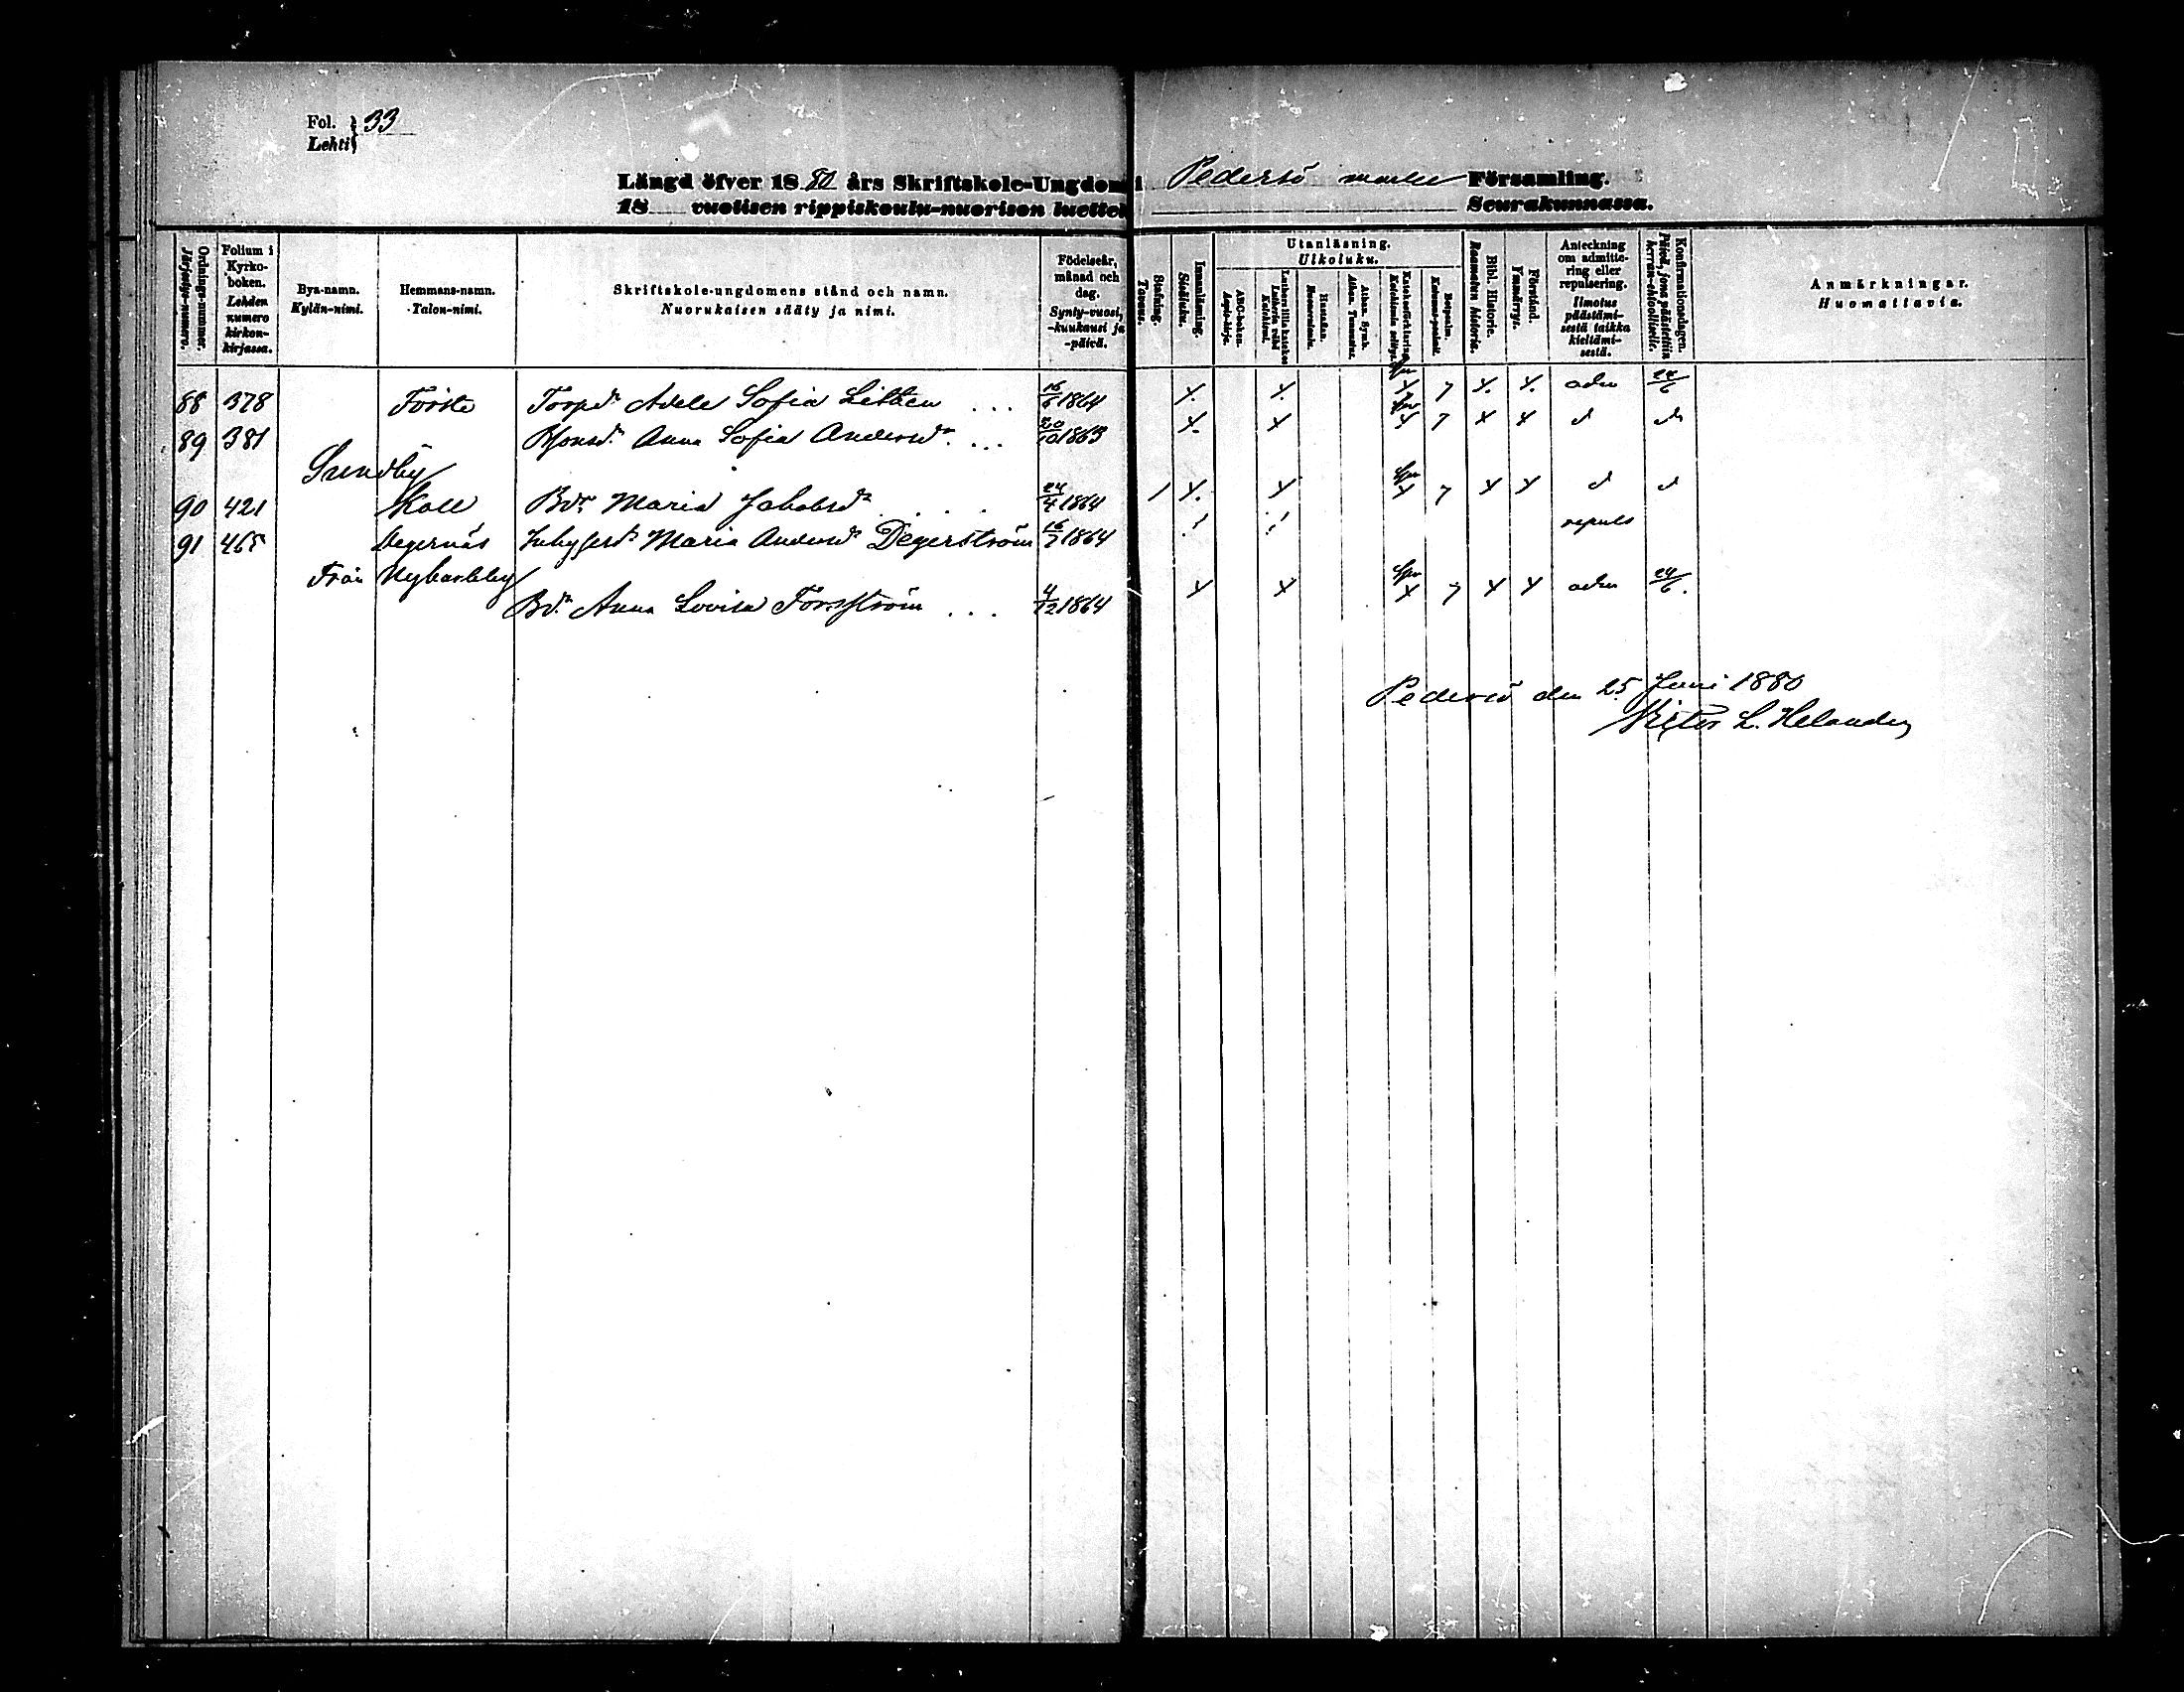 Fol. 33
Lehti
Längd öfver 1880 års Skriftskole-Ungdom i Pedersö Församling.
18 vuotisen rippiskoulu-nuorison luettelo Seurakunnassa.
Ordnings-nummer. Järjestys-numero.
Folium i Kyrko-boken. Lehden numero kirkon-kirjassa.
Bya-namn. Kylän-nimi.
Hemmans-namn. Talon-nimi.
Skriftskole-ungdomens stånd och namn. Nuorukaisen sääty ja nimi.
Födelseår, månad och dag. Synty-vuosi, -kuukausi ja -päivä.
Stafning. Tavaus.
Innanläsning. Sisäluku.
Utanläsning. Ulkoluku.
ABC-boken. Aapis-kirja.
Lutheri lilla katekes Lutherin vähä Katekismi.
Hustaflan. Huoneentaulu.
Athan. Symb. Athan. Tunnustus.
Katekesförklaring Katekismin selitys.
Botpsalm. Katumus-psalmi.
Bibl. Historie. Raamatun historia.
Förstånd. Ymmärrys.
Anteckning om admitte-ring eller repulsering. Ilmotus päästämi-sestä taikka kieltämi-sestä.
Konfirmationsdagen. Päivä, jona päästettiin herran-ehtoolliselle.
Anmärkningar. Huomattavia.
88 378 Forste Torpd:r Adele Sofia Litten ... 16/6 1864 x. x. x 7 x. x. adm 24/6
89 381 Anna Sofia Andersd:r ... 20/10 1863 x. x x 7 x x d d
Sundby
90 421 Kall Bd:r Maria Jakobsd:r .... 24/4 1864 / x. x x 7 x x d d
91 465 Degernäs Inhysesd:r Maria Andersd:r Degerström 16/7 1864 repuls
Från Nykarleby
Bd:r Anna Lovisa Forsström ... 4/12 1864 x x x 7 x x adm 24/6.
Pedersö den 25 Juni 1880
Victor L. Helander